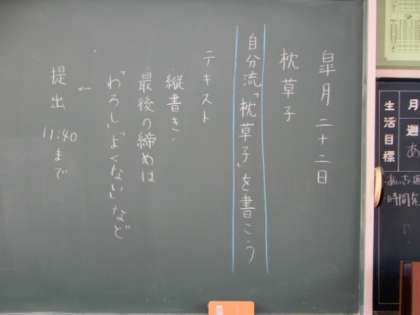 皐月二十二日
枕草子
自分流『枕草子』を書こう
テキスト
縦書き・
最後の締めは
「わろし」「よくない」など
提出 11:40まで
月
週
生活目標
あ